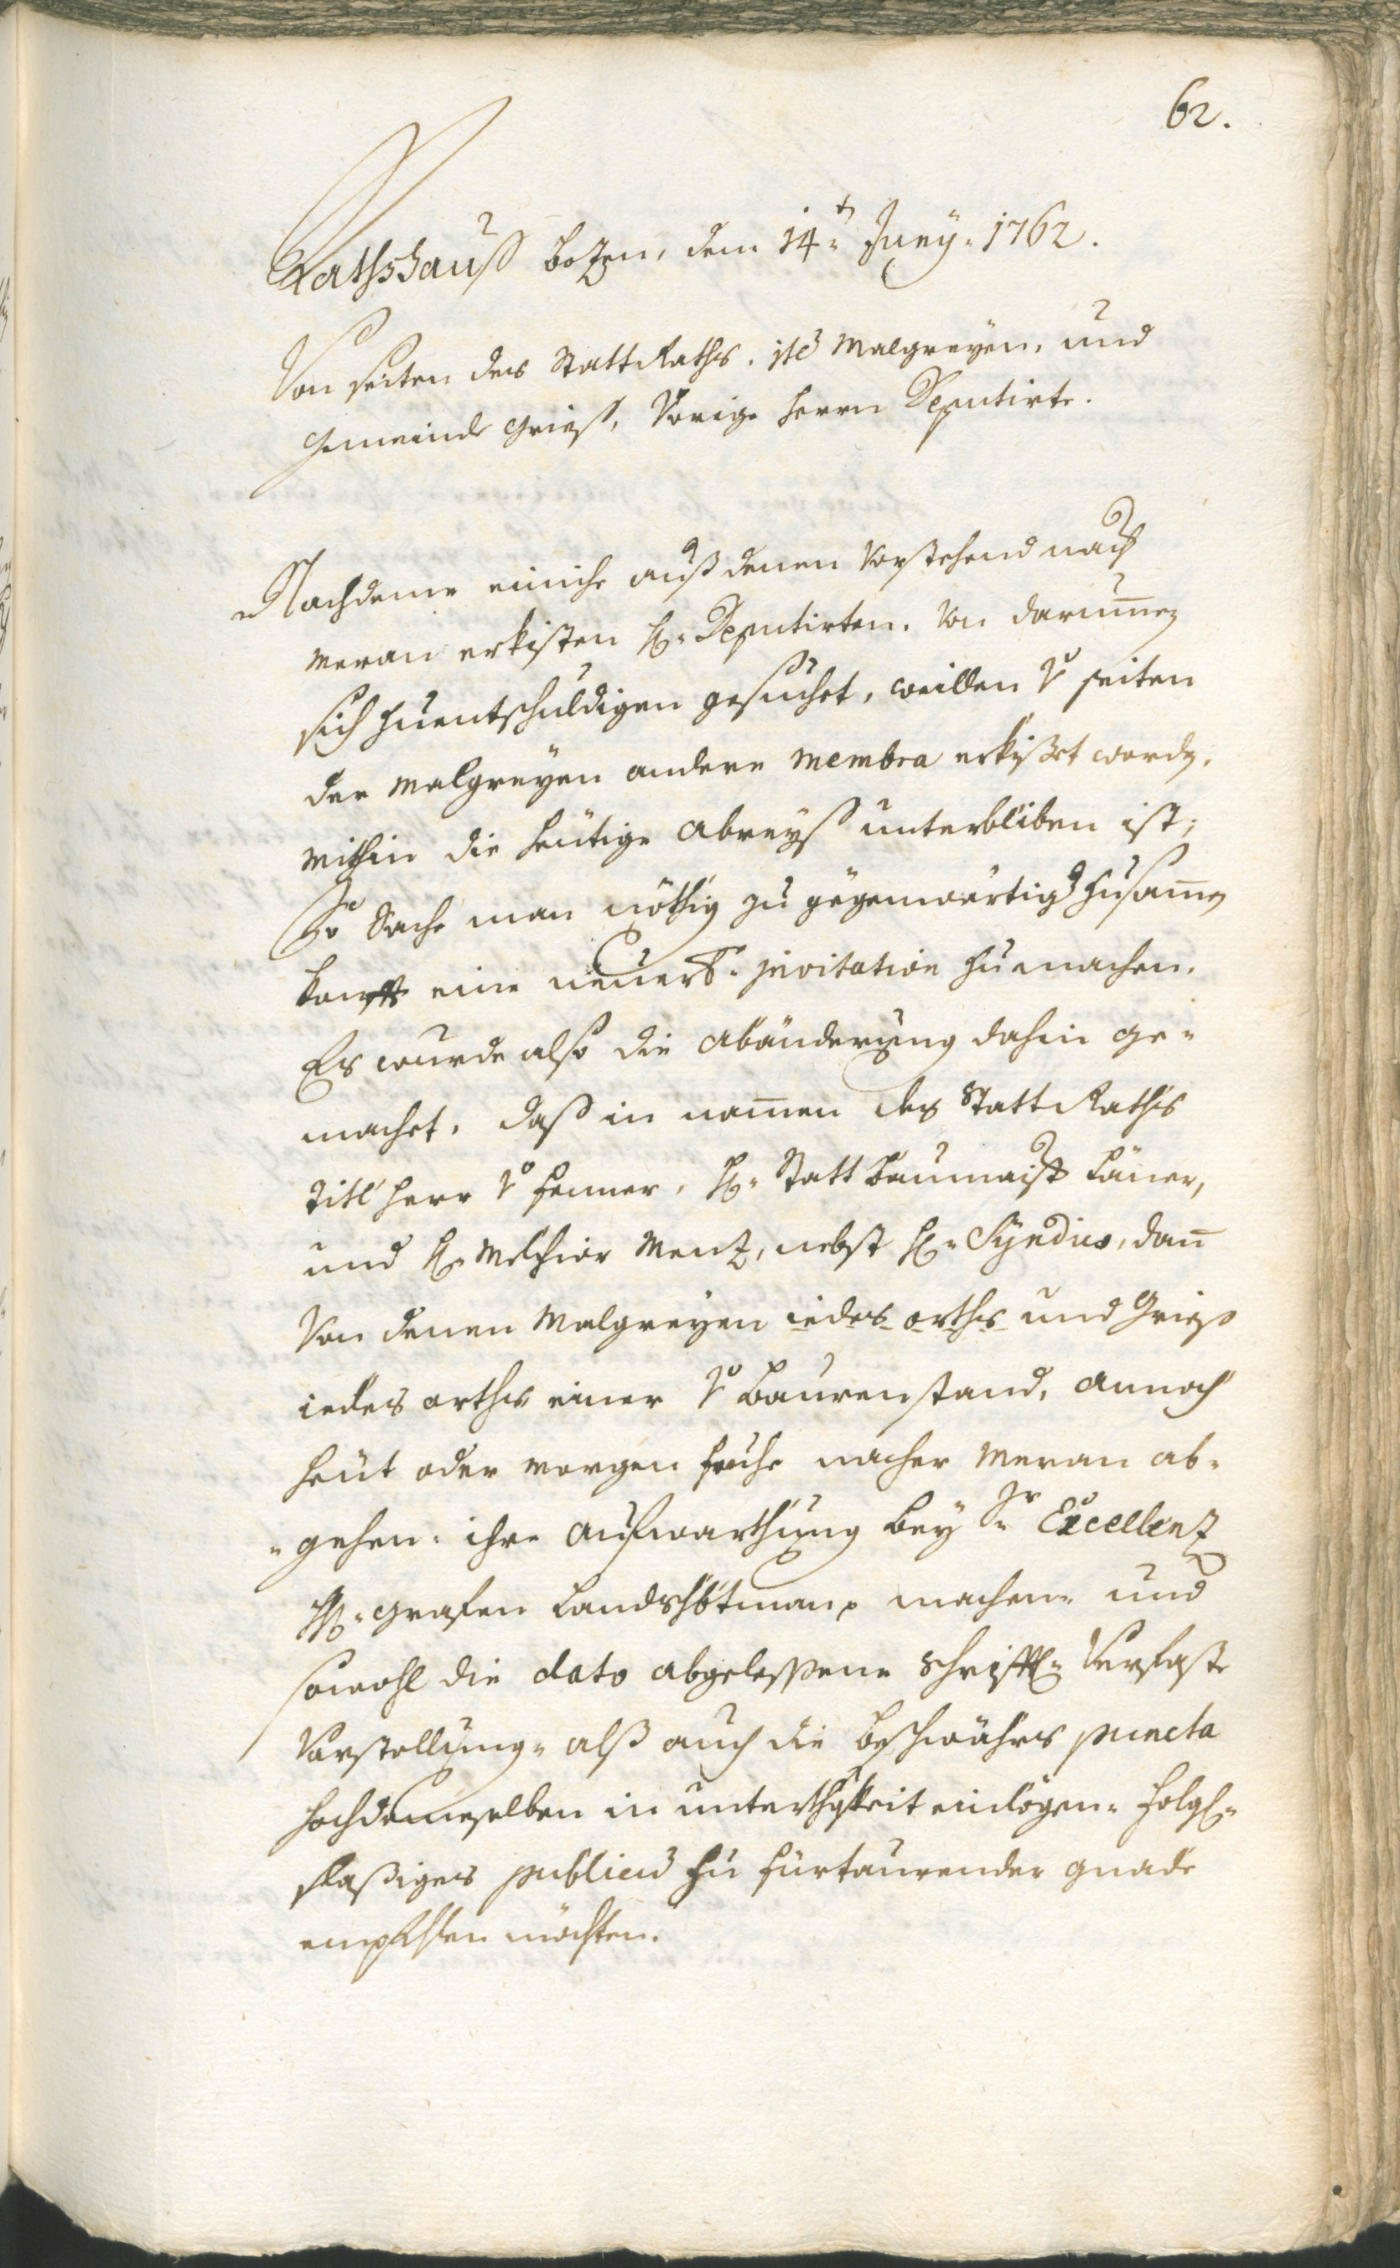 62.
Rathshauß Bozen, dem 14t Juny 1762.
Von seiten des Statt Raths. ite Malgreyen, und
Gemeinde Grieß, Vorige Herrn Deputirte.
Nachdeme einiche auß denen Vorstehend nach
Meran erkisten H: Deputirten. Von darumen
sich zuentschuldigen gesuchet, weillen v: seiten
der Malgreyen andere Membra erkißet worden.
Mithin die heutige Abreyß unterbliben ist;
So Sache man nöthig zu gegenwärtig Zusamen
kunft eine neuer invitation zu machen.
Es wurde also die Abänderung dahin ge=
machet, daß in namen des Statt Raths
Titl Herr v: Fenner, H: Statt Baumaist
und H: Melchior Menz, nebst H: Syndico, dan
Von denen Malgreyen iedes orths und Grieß
iedes orths einer v: Baurenstand, annoch
heut oder morgen fruhe nacher Meran ab=
=gehen. ihre Aufwarthung bey Sr Excellenz
H: Grafen Landshbtman machen und
sowohl die dato abgelessene schriftl: Verfaste
Vorstellung= alß auch die beschwährs puncta
hochdemeselben in unterthgkeit einlögen= folgl=
seßiges publicu zu fürtaurender Gnade
empfehlen möchten.